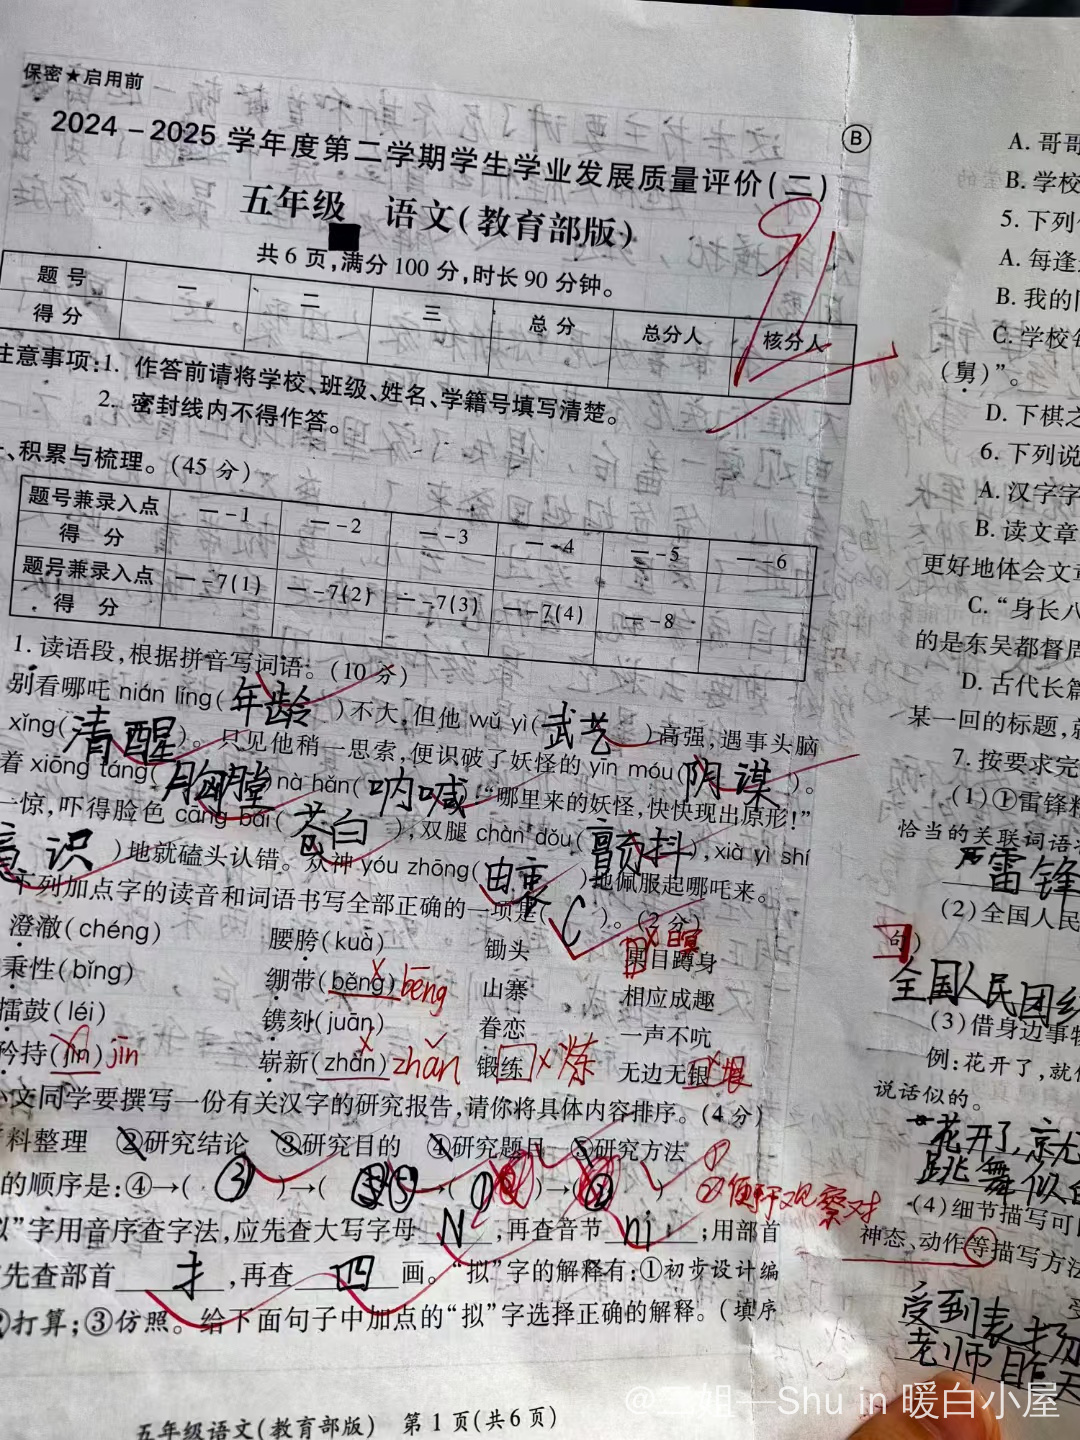 保密★启用前
2024-2025学年度第二学期学生学业发展质量评价(二)
B
五年级 语文(教育部版)
91
共6页,满分100分,时长90分钟。
题号 一 二 三 总分 总分人 核分人
得分
注意事项:1. 作答前请将学校、班级、姓名、学籍号填写清楚。
2. 密封线内不得作答。
一、积累与梳理。(45分)
题号兼录入点 一-1 一-2 一-3 一-4 一-5 一-6
得分
题号兼录入点 一-7(1) 一-7(2) 一-7(3) 一-7(4) 一-8
得分
1. 读语段,根据拼音写词语。(10分)
别看哪吒 nián líng(年龄)不大,但他 wǔ yì(武艺)高强,遇事头脑
xǐng(清醒)。只见他稍一思索,便识破了妖怪的 yīn móu(阴谋)。
着 xiōng táng(胸膛) nà hǎn(呐喊):“哪里来的妖怪,快快现出原形!”
一惊,吓得脸色 cāng bái(苍白),双腿 chàn dǒu(颤抖),xià yì shí
意识)地就磕头认错。众神 yóu zhōng(由衷)地佩服起哪吒来。
下列加点字的读音和词语书写全部正确的一项是(C)。(2分)
澄澈(chéng) 腰胯(kuà) 锄头 果目蹲身 × 瞑
秉性(bǐng) 绷带(běng) × bēng 山寨 相应成趣
擂鼓(léi) 镌刻(juān) 眷恋 一声不吭
矜持(jīn) jīn 崭新(zhǎn) × zhǎn 锻练 × 炼 无边无银 × 垠
小文同学要撰写一份有关汉字的研究报告,请你将具体内容排序。(4分)
料整理 ②研究结论 ③研究目的 ④研究题目 ⑤研究方法
的顺序是:④→(③)→(⑤)→(①)→(②)
①
②便于观察对
拟”字用音序查字法,应先查大写字母N,再查音节nǐ;用部首
先查部首扌,再查四画。“拟”字的解释有:①初步设计编
②打算;③仿照。给下面句子中加点的“拟”字选择正确的解释。(填序
五年级语文(教育部版) 第1页(共6页)
A. 哥哥
B. 学校
5. 下列
A. 每逢
B. 我的
C. 学校
(舅)”。
D. 下棋之
6. 下列说
A. 汉字字
B. 读文章
更好地体会文章
C. “身长八
的是东吴都督周
D. 古代长篇
某一回的标题,就
7. 按要求完
(1)①雷锋精
恰当的关联词语
雷锋
(2)全国人民
句)
全国人民团结
(3)借身边事物
例:花开了,就像
说话似的。
花开了,就
跳舞似的
(4)细节描写可
神态、动作等描写方法
受到表扬
老师昨天
姐—Shu in 暖白小屋